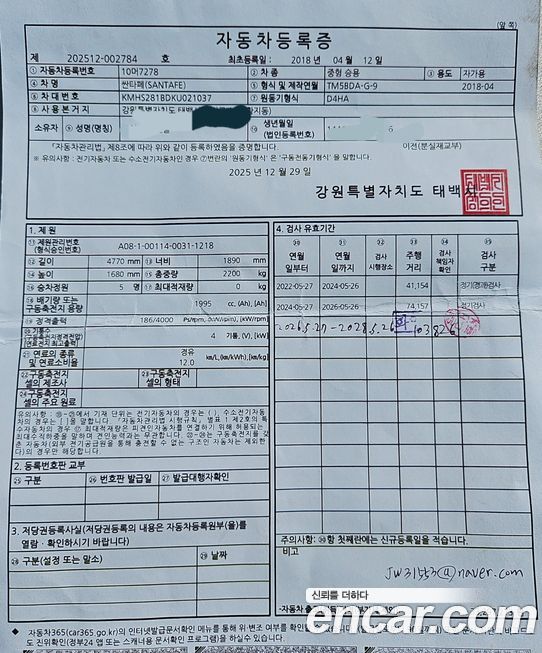 (앞 쪽)
자동차등록증
제 202512-002784 호 최초등록일 : 2018 년 04 월 12 일
① 자동차등록번호 10머7278 ② 차종 중형 승용 ③ 용도 자가용
④ 차명 싼타페(SANTAFE) ⑤ 형식 및 제작연월 TM5BDA-G-9 2018-04
⑥ 차대번호 KMHS281BDKU021037 ⑦ 원동기형식 D4HA
⑧ 사용본거지 강원특별자치도 태백
소유자 ⑨ 성명(명칭) ⑩ 생년월일 (법인등록번호)
「자동차관리법」 제8조에 따라 위와 같이 등록하였음을 증명합니다. 이전(분실재교부)
※ 유의사항 : 전기자동차 또는 수소전기자동차인 경우 ⑦번란의 '원동기형식' 은 '구동전동기형식' 을 말합니다.
2025 년 12 월 29 일
강원특별자치도 태백시
1. 제원
⑪ 제원관리번호 (형식승인번호) A08-1-00114-0031-1218
⑫ 길이 4770 mm ⑬ 너비 1890 mm
⑭ 높이 1680 mm ⑮ 총중량 2200 kg
⑯ 승차정원 5 명 ⑰ 최대적재량 0 kg
⑱ 배기량 또는 구동축전지 용량 1995 cc, (Ah), [Ah]
⑲ 정격출력 186/4000 Ps/rpm, (kW/rpm), [kW/rpm]
⑳ 기통수 4 기통, (V), [kW]
㉑ 연료의 종류 및 연료소비율 경유 12.0 km/L, (km/kWh), [km/kg]
㉒ 구동축전지 셀의 제조사 ㉓ 구동축전지 셀의 형태
㉔ 구동축전지 셀의 주요 원료
2. 등록번호판 교부
㉕ 구분 ㉖ 번호판 발급일 ㉗ 발급대행자확인
3. 저당권등록사실(저당권등록의 내용은 자동차등록원부(을)를 열람ㆍ확인하시기 바랍니다)
㉘ 구분(설정 또는 말소) ㉙ 날짜
4. 검사 유효기간
㉚ 연월일부터 ㉛ 연월일까지 ㉜ 검사시행장소 ㉝ 주행거리 ㉞ 검사책임자확인 ㉟ 검사구분
2022-05-27 2024-05-26 41,154 정기(경과)검사
2024-05-27 2026-05-26 74,157 정기검사
2026.5.27 - 2028.5.26 103826
주의사항: ㉚항 첫째란에는 신규등록일을 적습니다.
비고
JW31553@naver.com
신뢰를 더하다
encar.com
◆ 자동차365(car365.go.kr)의 인터넷발급문서확인 메뉴를 통해 위·변조 여부를 확인